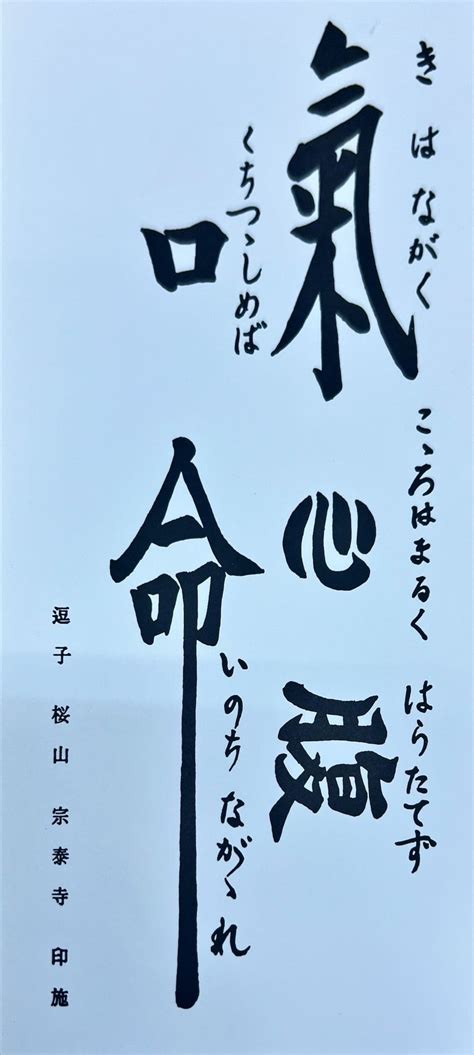 きはながく こゝろはまるく はらたてず
氣 心 腹
くちつゝしめば いのちながゝれ
口 命
逗子 桜山 宗泰寺 印施